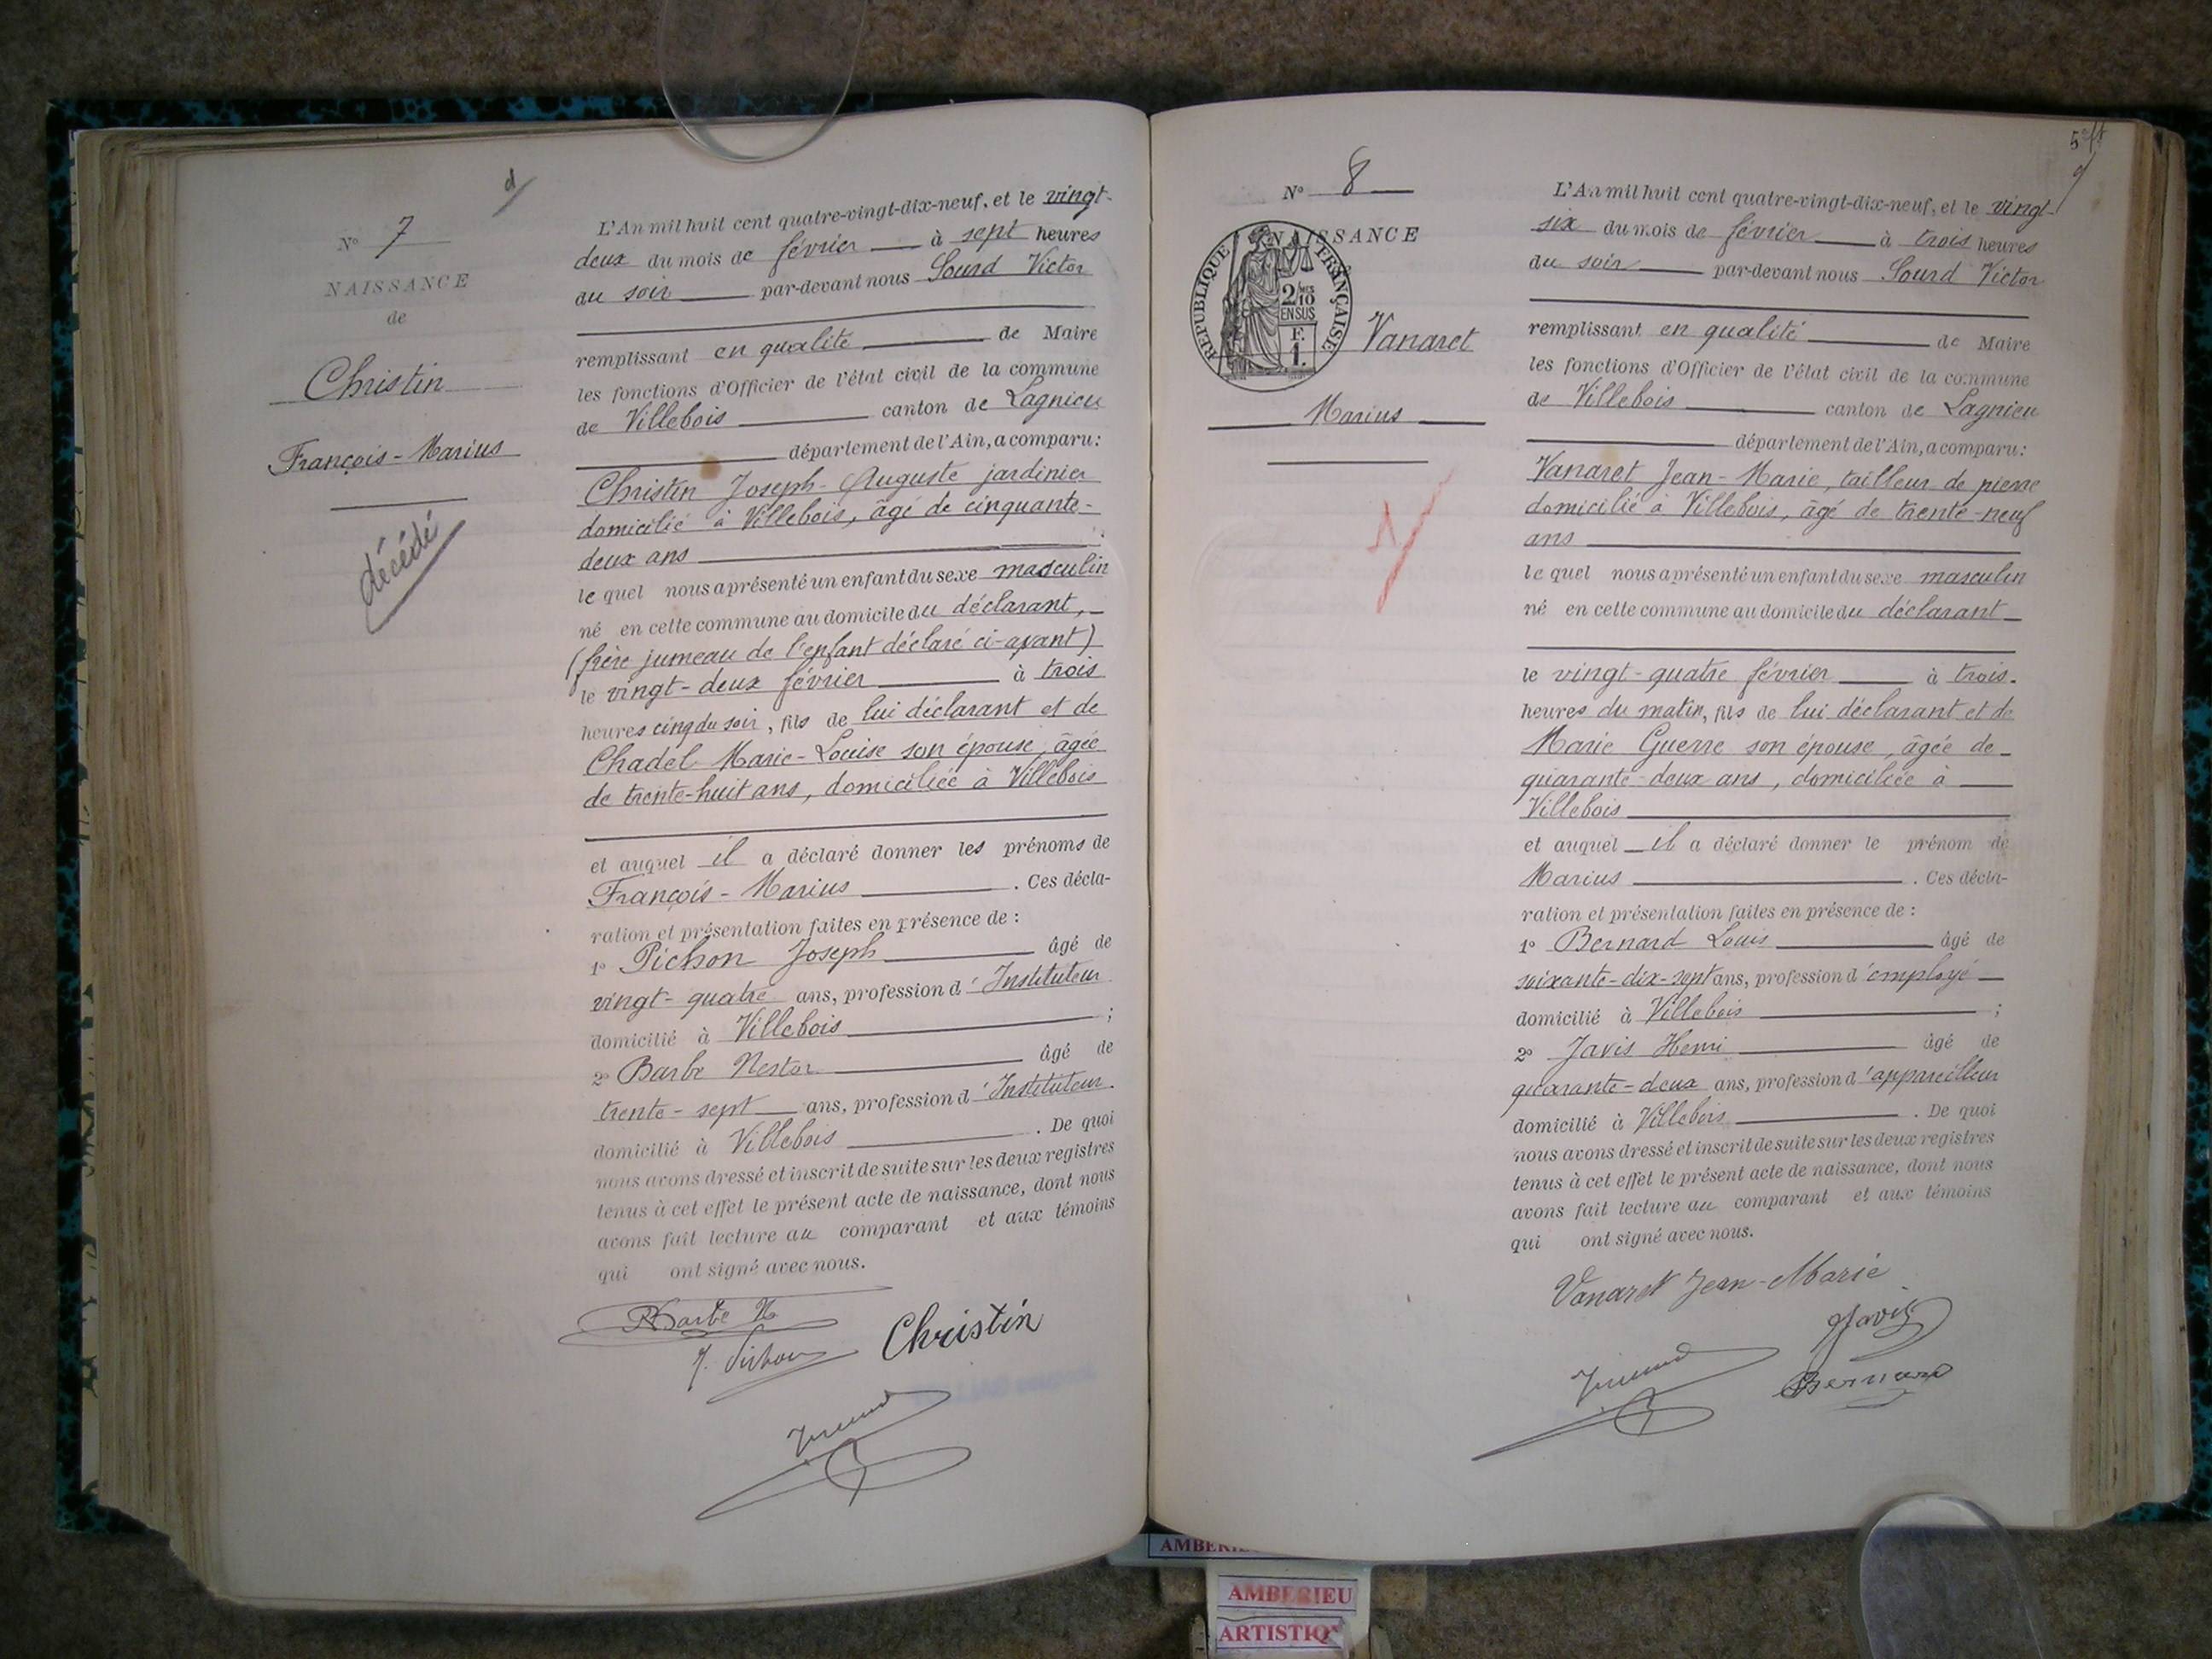 d
N° 7
NAISSANCE
de
Christin
François-Marius
décédé
L'An mil huit cent quatre-vingt-dix-neuf, et le vingt-
deux du mois de février à sept heures
du soir par-devant nous Sourd Victor
remplissant en qualité de Maire
les fonctions d'Officier de l'état civil de la commune
de Villebois canton de Lagnieu
département de l'Ain, a comparu:
Christin Joseph-Auguste jardinier
domicilié à Villebois, âgé de cinquante-
deux ans
le quel nous a présenté un enfant du sexe masculin
né en cette commune au domicile du déclarant,
(frère jumeau de l'enfant déclaré ci-avant)
le vingt-deux février à trois
heures cinq du soir, fils de lui déclarant et de
Chadel Marie-Louise son épouse, âgée
de trente-huit ans, domiciliée à Villebois
et auquel il a déclaré donner les prénoms de
François-Marius. Ces décla-
ration et présentation faites en présence de :
1° Pichon Joseph âgé de
vingt-quatre ans, profession d'Instituteur
domicilié à Villebois ;
2° Barbe Nestor âgé de
trente-sept ans, profession d'Instituteur.
domicilié à Villebois. De quoi
nous avons dressé et inscrit de suite sur les deux registres
tenus à cet effet le présent acte de naissance, dont nous
avons fait lecture au comparant et aux témoins
qui ont signé avec nous.
Barbe N
J. Pichon Christin
5
N° 8
NAISSANCE
RÉPUBLIQUE FRANÇAISE
2/10
EN SUS
F.
1.
Vanaret
Marius
L'An mil huit cent quatre-vingt-dix-neuf, et le vingt-
six du mois de février à trois heures
du soir par-devant nous Sourd Victor
remplissant en qualité de Maire
les fonctions d'Officier de l'état civil de la commune
de Villebois canton de Lagnieu
département de l'Ain, a comparu:
Vanaret Jean-Marie, tailleur de pierre
domicilié à Villebois, âgé de trente-neuf
ans
le quel nous a présenté un enfant du sexe masculin
né en cette commune au domicile du déclarant
le vingt-quatre février à trois
heures du matin, fils de lui déclarant et de
Marie Guerre son épouse, âgée de
quarante-deux ans, domiciliée à
Villebois
et auquel il a déclaré donner le prénom de
Marius. Ces décla-
ration et présentation faites en présence de :
1° Bernard Louis âgé de
soixante-dix-sept ans, profession d'employé
domicilié à Villebois ;
2° Javis Henri âgé de
quarante-deux ans, profession d'appareilleur
domicilié à Villebois. De quoi
nous avons dressé et inscrit de suite sur les deux registres
tenus à cet effet le présent acte de naissance, dont nous
avons fait lecture au comparant et aux témoins
qui ont signé avec nous.
Vanaret Jean-Marie
Javis
Bernard
AMBERIEU
ARTISTIQ